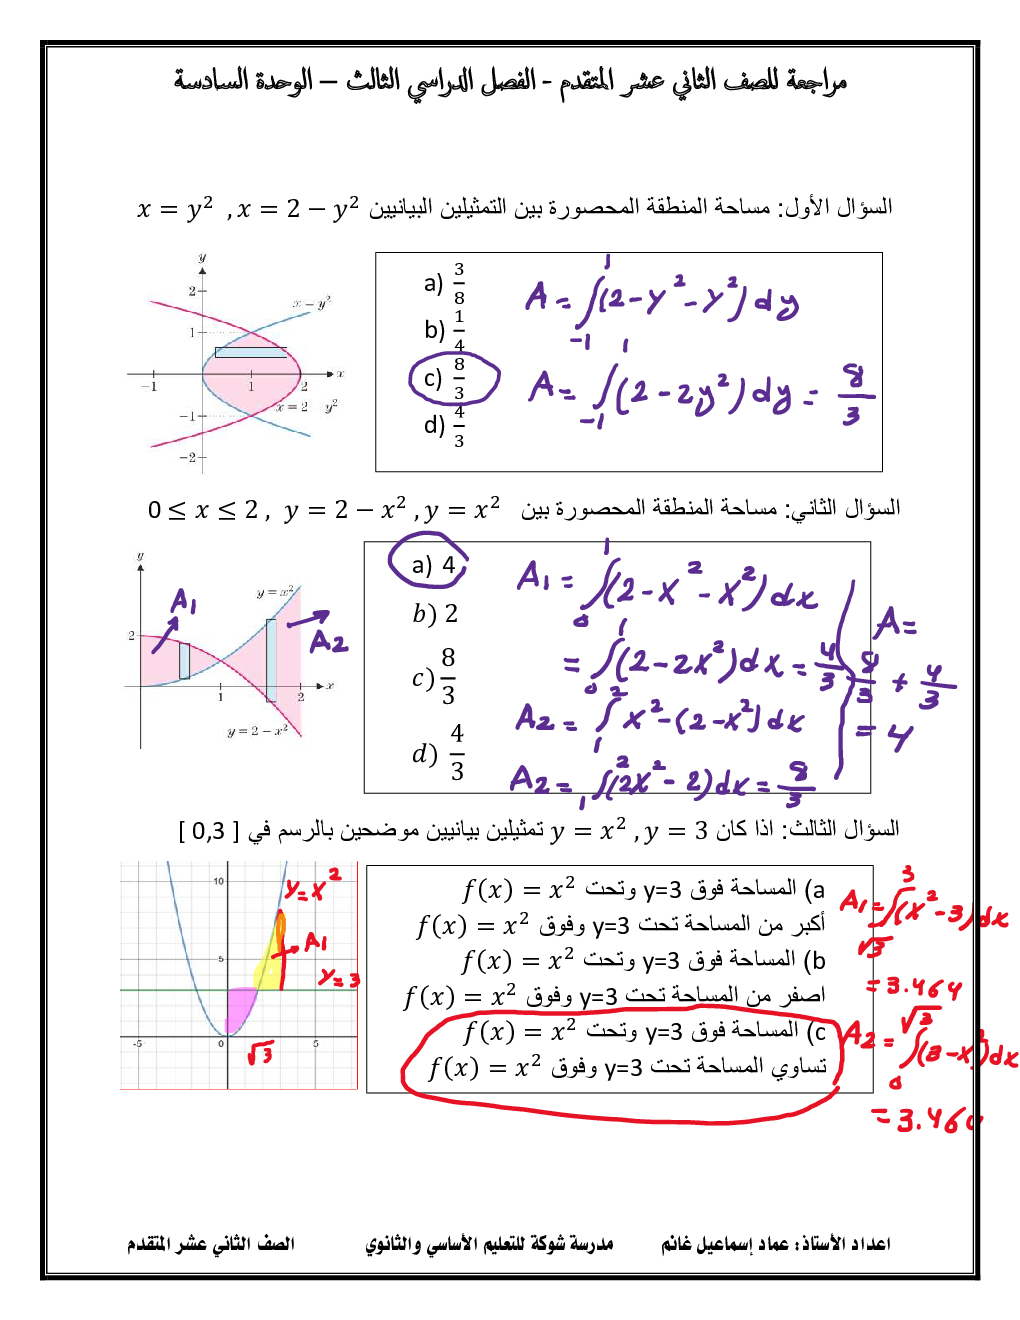 مراجعة للصف الثاني عشر المتقدم - الفصل الدراسي الثالث – الوحدة السادسة
السؤال الأول: مساحة المنطقة المحصورة بين التمثيلين البيانيين x = y² , x = 2 − y²
y
2
x − y²
1
−1
1
2
x
x = 2   y²
−1
−2
a) 3/8
b) 1/4
c) 8/3
d) 4/3
A = ∫₋₁¹ (2 - y² - y²) dy
A = ∫₋₁¹ (2 - 2y²) dy = 8/3
السؤال الثاني: مساحة المنطقة المحصورة بين y = x² , y = 2 − x² , 0 ≤ x ≤ 2
y
y = x²
A1
A2
2
1
2
x
y = 2 − x²
a) 4
b) 2
c) 8/3
d) 4/3
A1 = ∫₀¹ (2 - x² - x²) dx
= ∫₀¹ (2 - 2x²) dx = 4/3
A2 = ∫₁² x² - (2 - x²) dx
A2 = ∫₁² (2x² - 2) dx = 8/3
A =
8/3 + 4/3
= 4
السؤال الثالث: اذا كان y = x² , y = 3 تمثيلين بيانيين موضحين بالرسم في [ 0,3 ]
10
y = x²
5
A1
y = 3
-5
0
√3
5
a) المساحة فوق y=3 وتحت f(x) = x²
أكبر من المساحة تحت y=3 وفوق f(x) = x²
b) المساحة فوق y=3 وتحت f(x) = x²
اصفر من المساحة تحت y=3 وفوق f(x) = x²
c) المساحة فوق y=3 وتحت f(x) = x²
تساوي المساحة تحت y=3 وفوق f(x) = x²
A1 = ∫√3³ (x² - 3) dx
= 3.464
A2 = ∫₀√3 (3 - x²) dx
= 3.464
اعداد الأستاذ: عماد إسماعيل غانم مدرسة شوكة للتعليم الأساسي والثانوي الصف الثاني عشر المتقدم